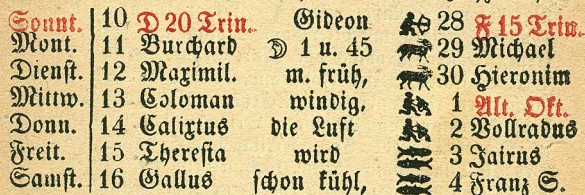 Sonnt. 10 D 20 Trin. Gideon 28 F 15 Trin.
Mont. 11 Burchard 1 u. 45 29 Michael
Dienst. 12 Maximil. m. früh, 30 Hieronim
Mittw. 13 Coloman windig, 1 Alt. Okt.
Donn. 14 Calixtus die Luft 2 Vollradus
Freit. 15 Theresia wird 3 Jairus
Samst. 16 Gallus schon kühl, 4 Franz S.